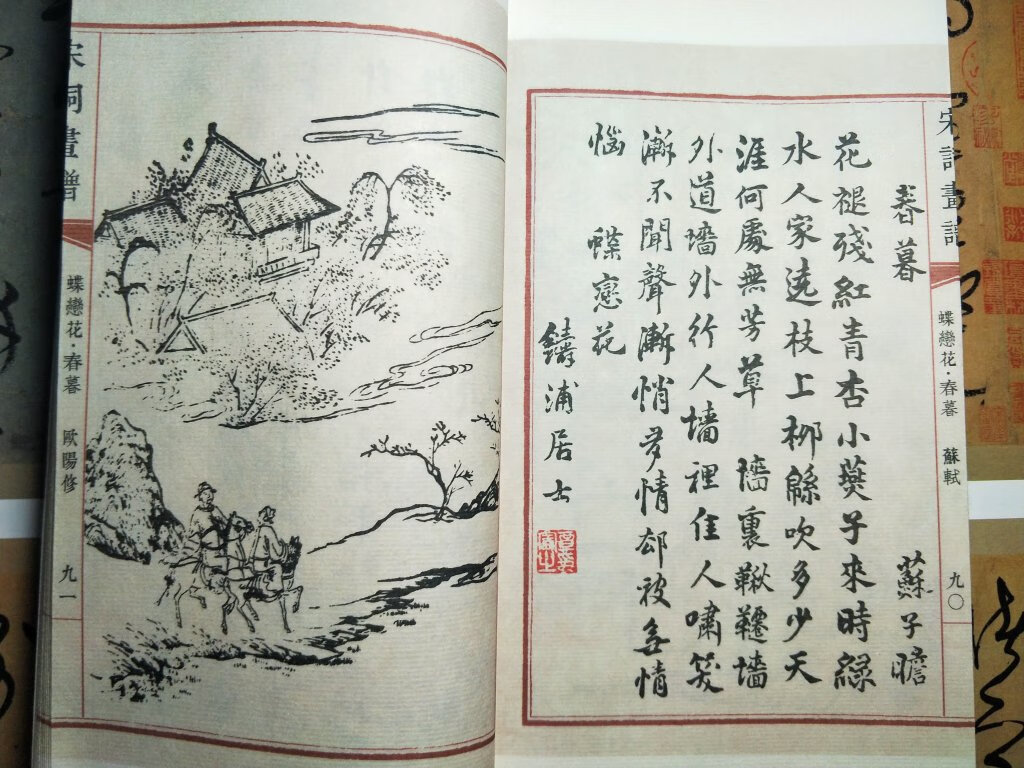 宋詞畫譜
蝶戀花·春暮 蘇軾
九〇
春暮 蘇子瞻
花褪殘紅青杏小燕子來時綠
水人家遶枝上柳緜吹多少天
涯何處無芳草 墻裏鞦韆墻
外道墻外行人墻裡佳人嘯笑
漸不聞聲漸悄多情却被無情
惱 蝶戀花
鑄浦居士
宋詞畫譜
蝶戀花·春暮 歐陽修
九一